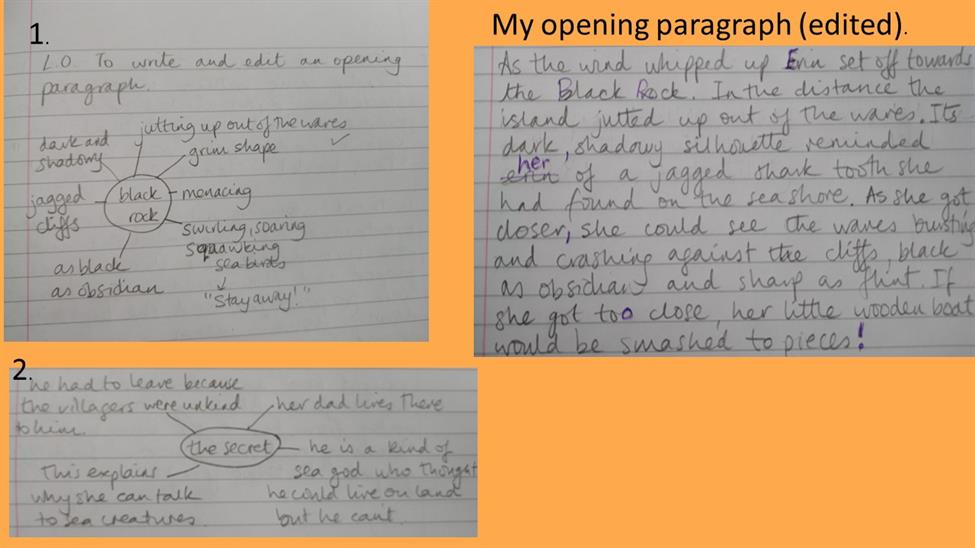 1.
L.O. To write and edit an opening
paragraph.
dark and
shadowy
jutting up out of the waves ✓
grim shape
jagged
cliffs
black
rock
menacing
swirling, soaring
squawking
sea birds
"Stay away!"
as black
as obsidian
2.
he had to leave because
the villagers were unkind
to him.
her dad lives there
the secret
he is a kind of
sea god who thought
he could live on land
but he can't.
This explains
why she can talk
to sea creatures.
My opening paragraph (edited).
As the wind whipped up Erin set off towards
the Black Rock. In the distance the
island jutted up out of the waves. Its
dark, shadowy silhouette reminded
her
erin of a jagged shark tooth she
had found on the sea shore. As she got
closer, she could see the waves bursting
and crashing against the cliffs, black
as obsidian and sharp as flint. If
she got too close, her little wooden boat
would be smashed to pieces!